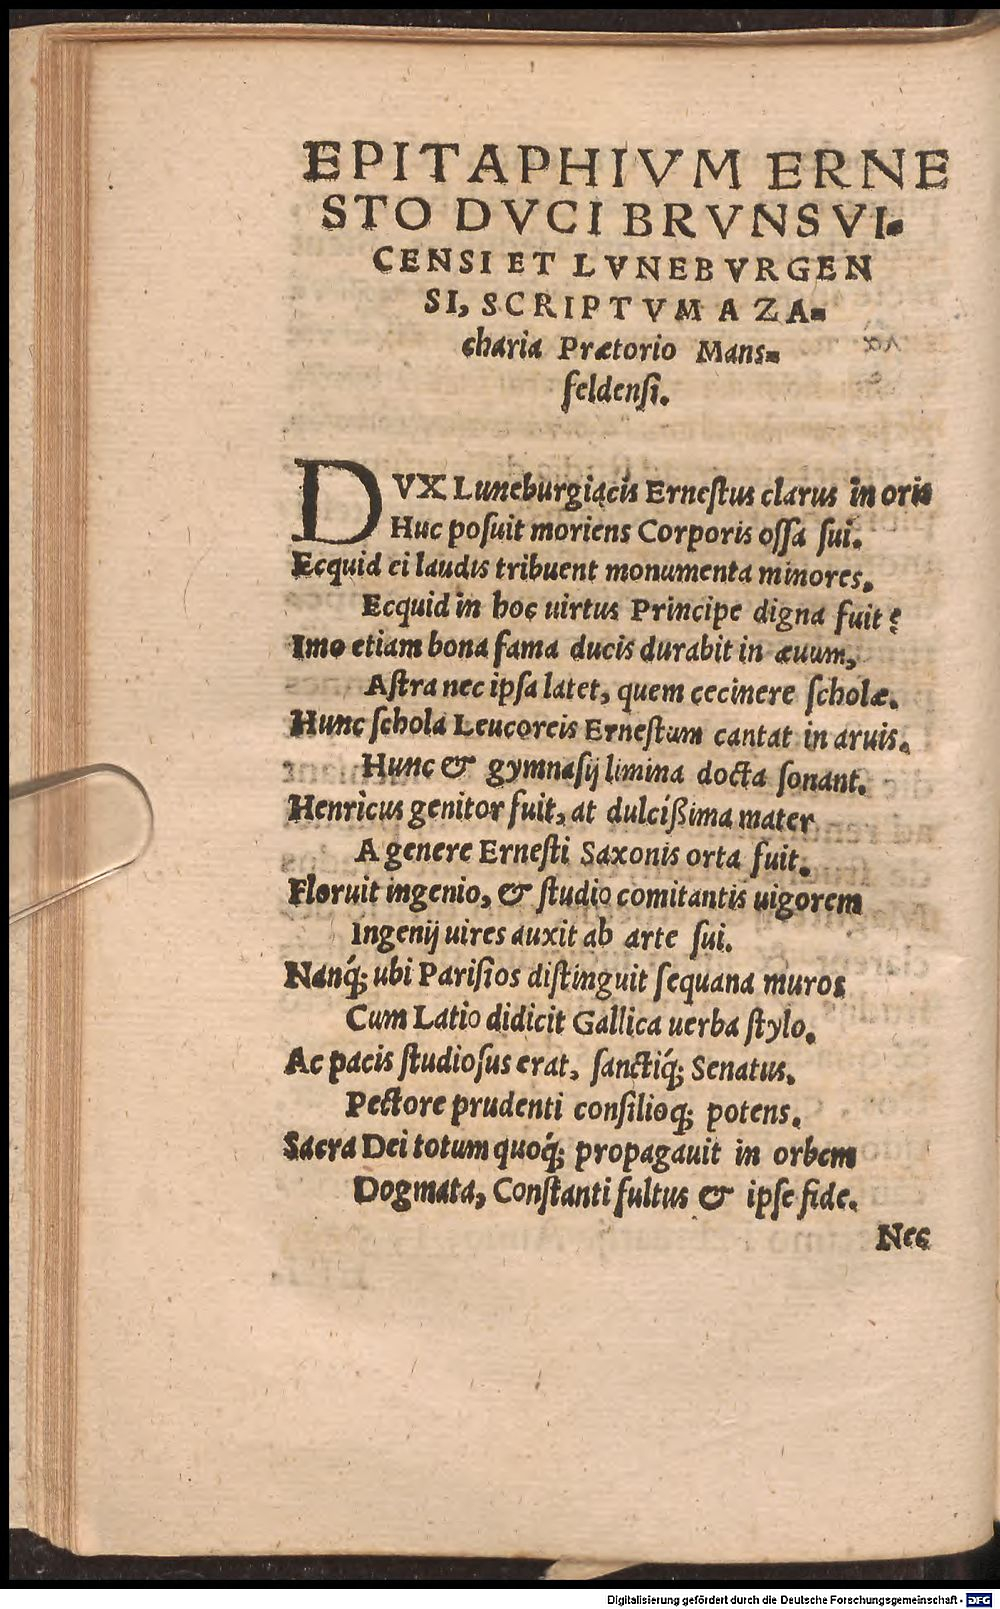 EPITAPHIVM ERNE
STO DVCI BRVNSVI-
CENSI ET LVNEBVRGEN
SI, SCRIPTVM A ZA-
charia Prætorio Mans-
feldenſi.
DVX Luneburgiacis Erneſtus clarus in oris
Huc poſuit moriens Corporis oſſa ſui.
Ecquid ei laudis tribuent monumenta minores,
Ecquid in hoc uirtus Principe digna fuit?
Imo etiam bona fama ducis durabit in æuum,
Aſtra nec ipſa latet, quem cecinere ſcholæ.
Hunc ſchola Leucoreis Erneſtum cantat in aruis,
Hunc & gymnaſij limina docta ſonant.
Henricus genitor fuit, at dulcißima mater
A genere Erneſti Saxonis orta fuit.
Floruit ingenio, & ſtudio comitantis uigorem
Ingenij uires auxit ab arte ſui.
Nanq́; ubi Pariſios diſtinguit ſequana muros
Cum Latio didicit Gallica uerba ſtylo.
Ac pacis ſtudioſus erat, ſanctiq́; Senatus,
Pectore prudenti conſilioq; potens.
Sacra Dei totum quoq́; propagauit in orbem
Dogmata, Conſtanti fultus & ipſe fide.
Nec
Digitalisierung gefördert durch die Deutsche Forschungsgemeinschaft - DFG